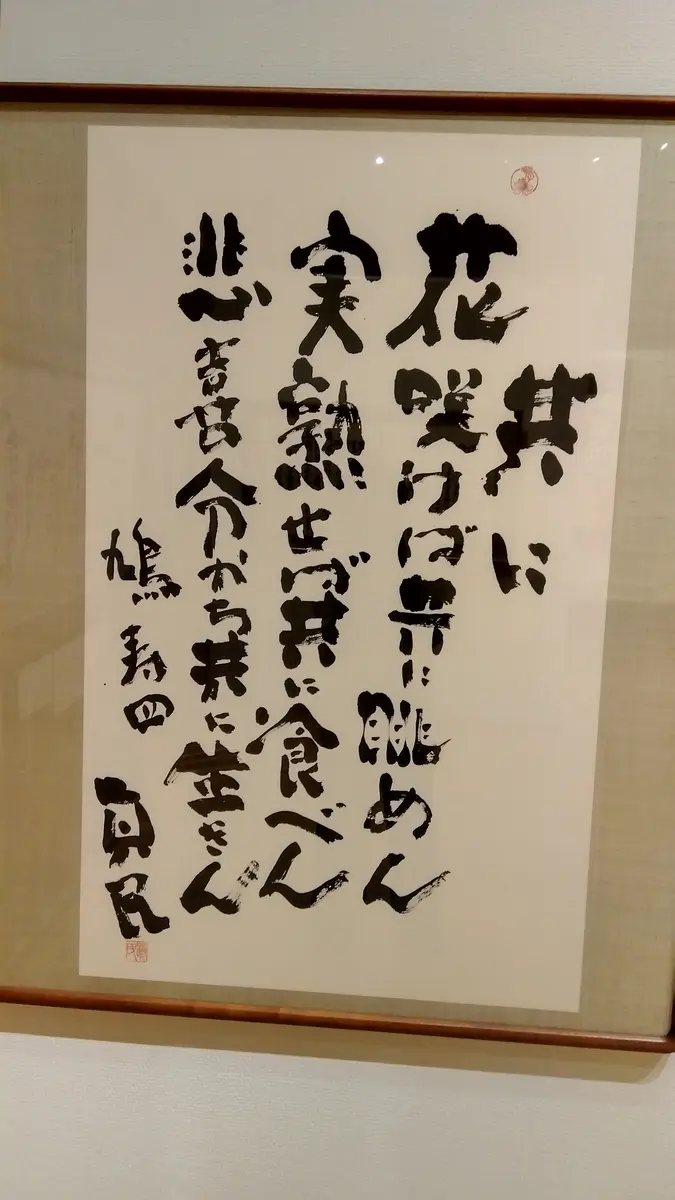 共に
花咲けば共に眺めん
実熟せば共に食べん
悲喜分かち共に生きん
鳩寿四
真民